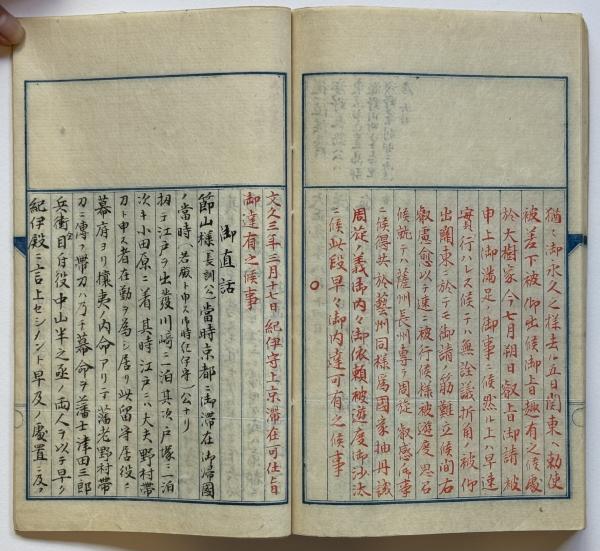 猶々御永久之様去ル五日関東ヘ勅使
被差下被仰出候御上旨趣有之候處
於大樹家ハ今七月朔日叡旨御請被
申上御満足ノ御事ニ候然ル上ハ早速
實行ハレス候テハ無詮議折角ノ被仰
出關東ニ於テモ御請ノ筋難立候間右
叡慮愈以テ速ニ被行候様被遊度思召
候就テハ薩州長州専ラ周旋叡感ノ事
ニ候得共於藝州同様為國家抽丹誠
周旋ノ義御内々御依頼被遊度御沙汰
ニ候此段早々御内達可有之候事
○
文久三年三月十七日紀伊守上京滞在可仕旨
御達有之候事
御直話
節山様長訓公當時京都ニ御滞在御帰國
ノ當時ハ若殿ト申ス御時紀伊守公ナリ
扨テ江戸ヲ出發川崎ニ一泊其次戸塚ニ一泊
次キ小田原ニ着其時江戸ニハ大夫野村帯
刀ト申ス者在勤ヲ為シ居リ此留守居役ニ
幕府ヨリ攘夷ノ内命アリテ藩老野村帯
刀ニ傳ヲ帯刀ハ乃チ幕命ヲ藩士津田三郎
兵衛目付役中山半之丞ノ両人ヲ以テ早ク
紀伊殿ニ言上セシメント早及ノ處置ニ及フ